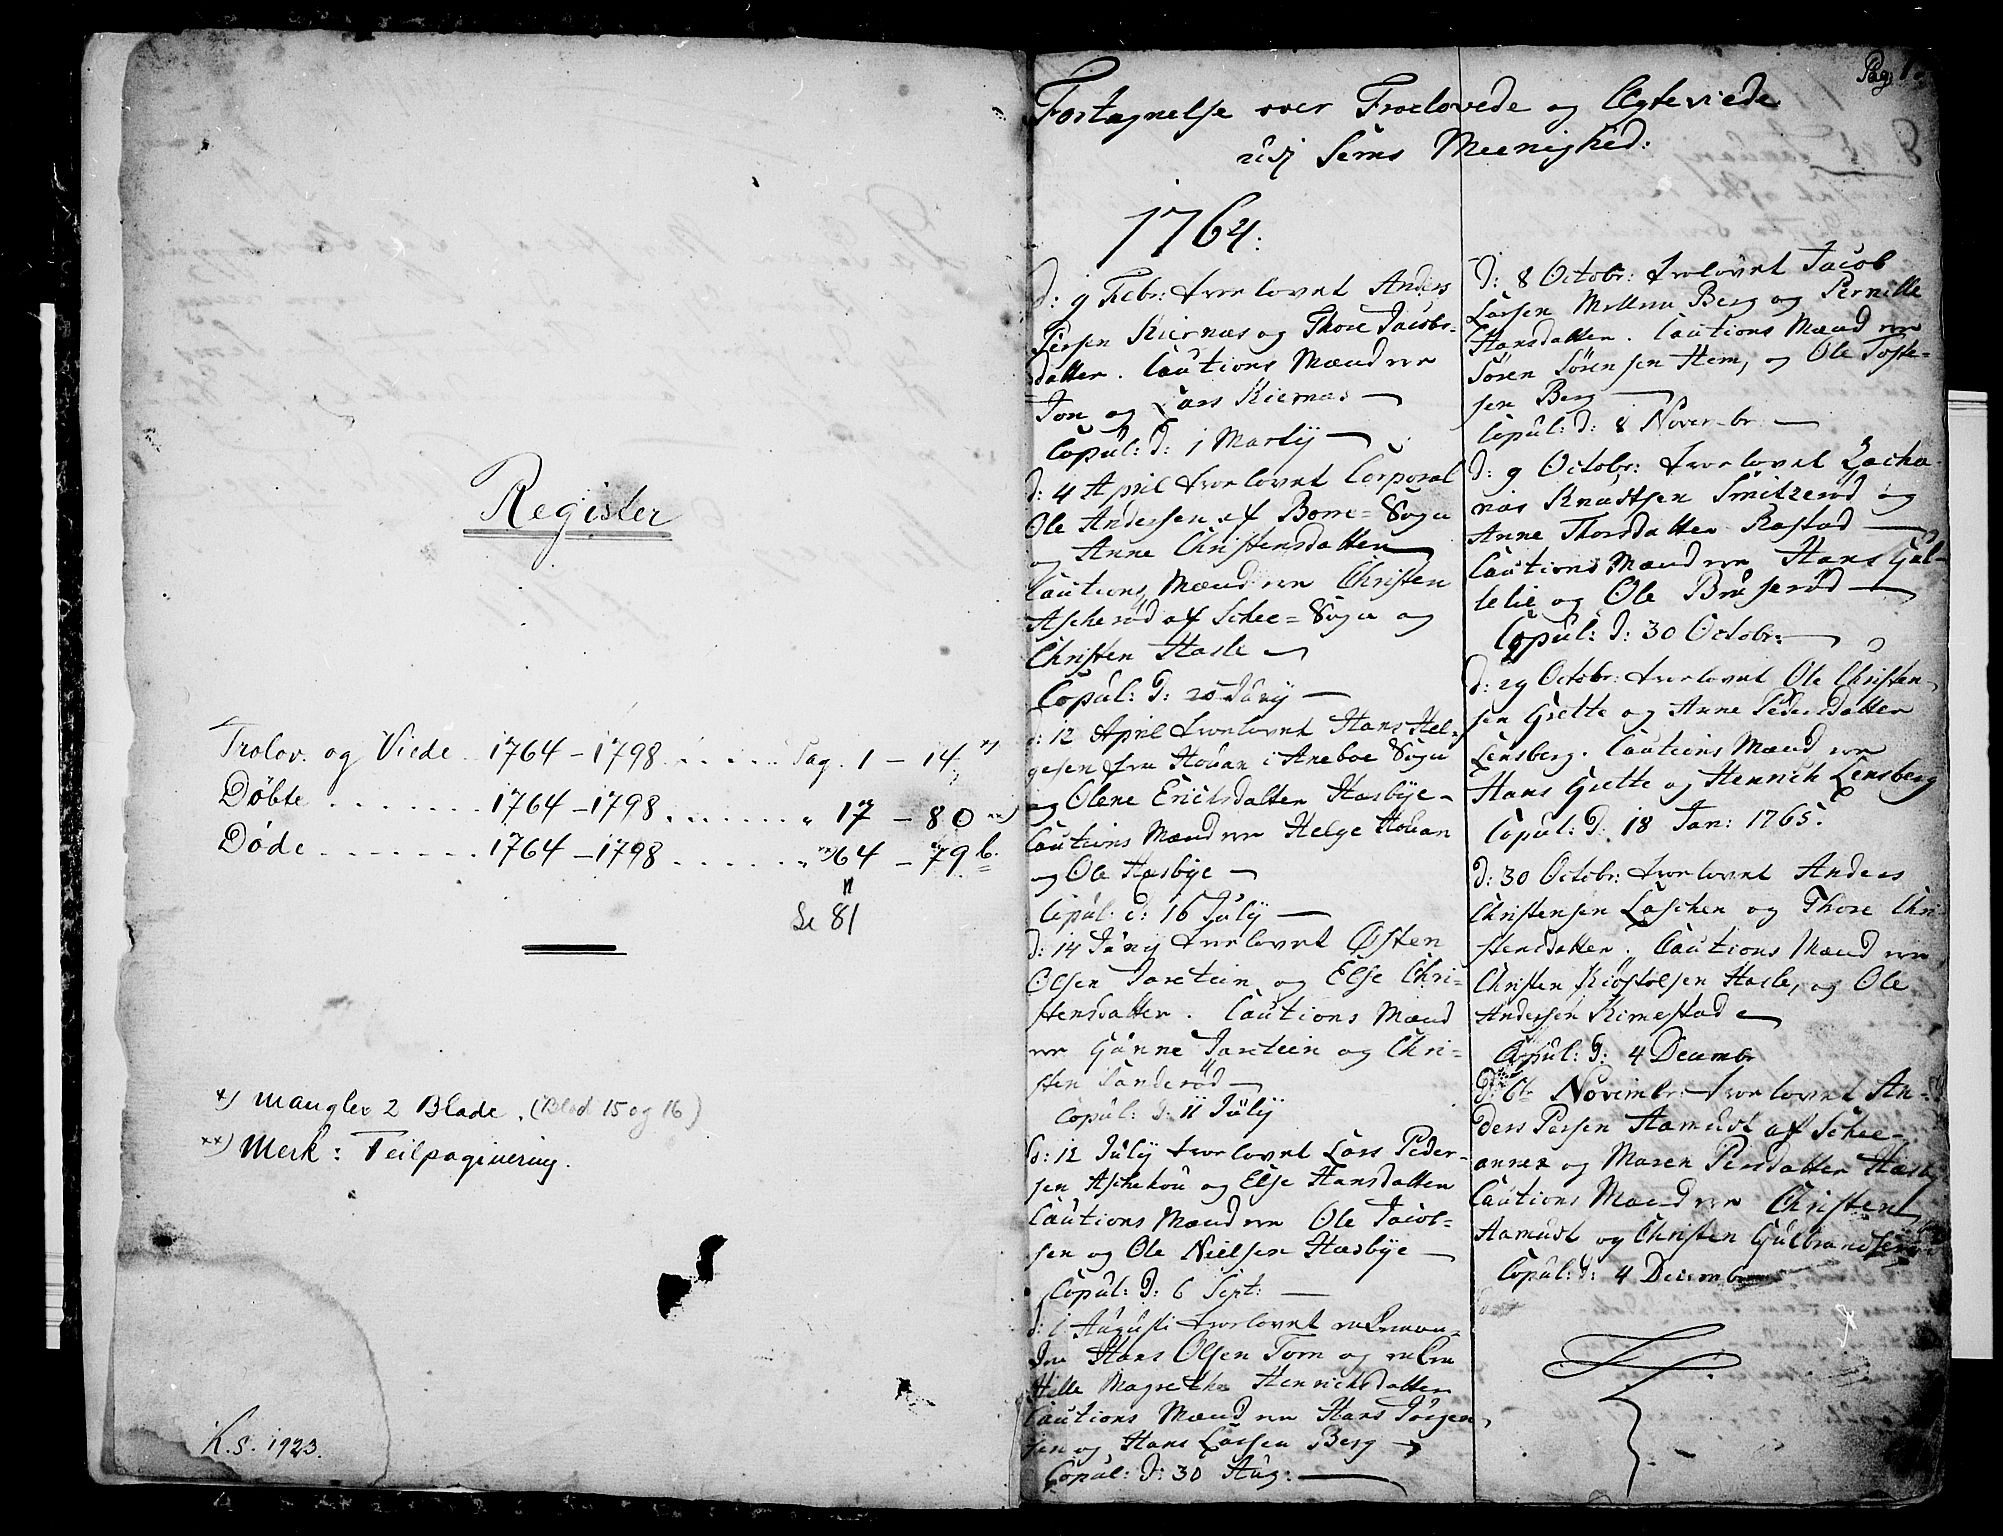 Register
Trolov. og Viede 1764 – 1798 ..... Pag. 1 – 14 x)
Döbte ....... 1764 – 1798 ....... „ 17 – 80 xx)
Döde ....... 1764 – 1798 ...... „ xx) 64 – 79 b.
Se 81
x) mangler 2 Blade. (Blad 15 og 16)
xx) Merk: Feilpaginering.
K.S. 1923.
Pag 1
Fortegnelse over Troelovede og Ægteviede
udj Sems Meenighed:
1764:
d: 9 Febr: troelovet Anders
Persen Kiernæs og Thore Jacobs-
datter. Cautions Mænd ere
Jon og Lars Kiernæs
Copul: d: 1 Martij
d: 4 April troelovet Corporal
Ole Andersen af Borre-Sogn
og Anne Christensdatter
Cautions Mænd ere Christen
Ascherød af Schee-Sogn og
Christen Hasle
Copul: d: 20 Junij
d: 12 April troelovet Hans Hel-
gesen fra Houan i Aneboe Sogn
og Olene Erichsdatter Hasbye
Cautions Mænd ere Helge Houan
og Ole Hasbye
Copul: d: 16 Julij
d: 14 Junij troelovet Østen
Olsen Jaretein og Else Chri-
stensdatter. Cautions Mænd
ere Gunne Jaretein og Chri-
sten Sanderød
Copul: d: 11 Julij
d: 12 Julij troelovet Lars Peder-
sen Aschehou og Else Hansdatter
Cautions Mænd ere Ole Jacob-
sen og Ole Nielsen Hasbye
Copul: d: 6 Sept:
d: 1 Augusti troelovet
Hans Olsen Tom og
Hille Magrethe Henrichsdatter
Cautions Mænd ere Hans Jørgen-
sen og Hans Larsen Berg
Copul: d: 30 Aug:
d: 8 Octobr: troelovet Jacob
Larsen Mellem Berg og Pernille
Hansdatter. Cautions Mænd ere
Søren Sørensen Hem, og Ole Toste-
sen Berg
Copul: d: 8 Novembr
d: 9 Octobr: troelovet Zacha-
rias Knudtsen Smitzerød og
Anne Thorsdatter Rastad
Cautions Mænd ere Hans Gul-
lelie og Ole Bruserød
Copul: d: 30 Octobr:
d: 29 Octobr: troelovet Ole Christen-
sen Grette og Anne Pedersdatter
Lensberg. Cautions Mænd ere
Hans Grette og Henrich Lensberg
Copul: d: 18 Jan: 1765.
d: 30 Octobr: troelovet Anders
Christensen Laschen og Thore Chri-
stensdatter. Cautions Mænd ere
Christen Kiøstolsen Hasle, og Ole
Andersen Kimestad
Copul: d: 4 Decembr
d: 6te Novembr: troelovet An-
ders Persen Aamudt af Schee-
annex og Maren Persdatter
Cautions Mænd ere Christen
Aamudt og Christen Gulbrandsen
Copul: d: 4 Decembr